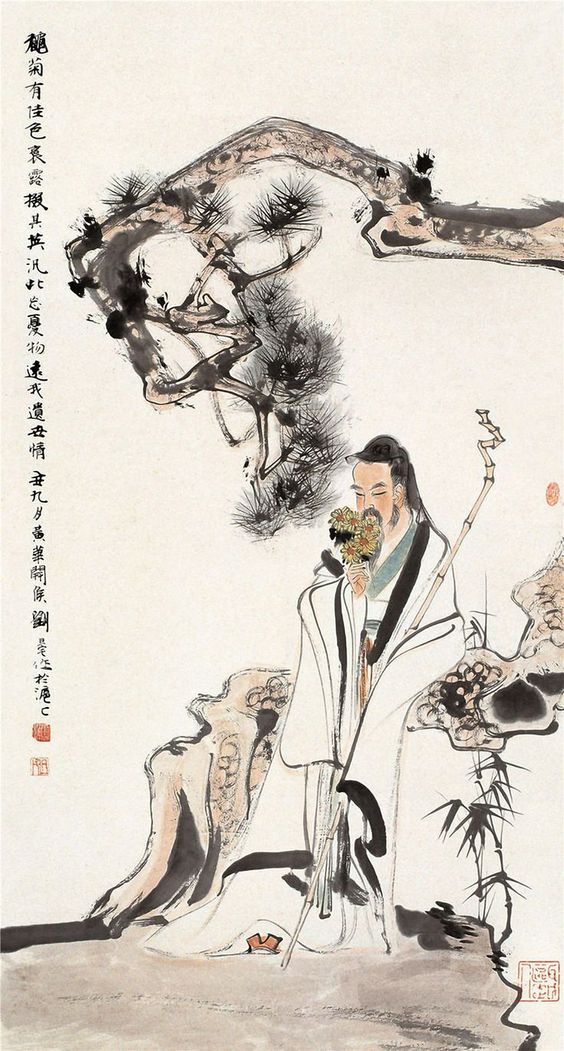 龝菊有佳色裛露掇其英汎此忘憂物遠我遺世情 丑九月黄華開候劉旦宅作於滬上